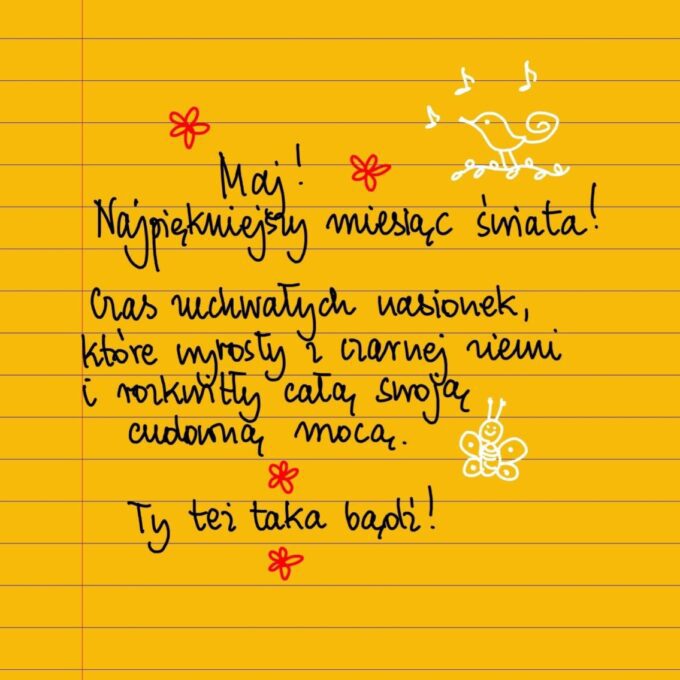 Maj!
Najpiękniejszy miesiąc świata!
Czas zuchwałych nasionek,
które wyrosły z czarnej ziemi
i rozkwitły całą swoją
cudowną mocą.
Ty też taka bądź!